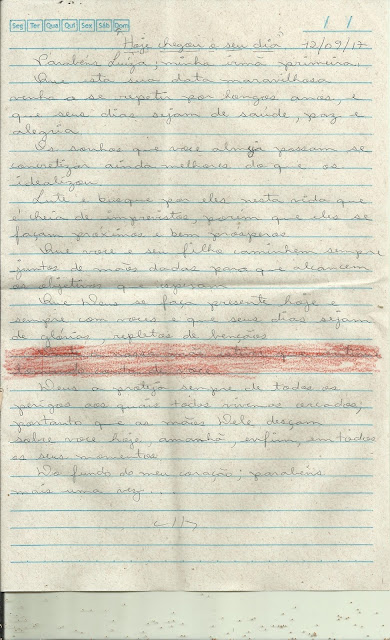 Seg Ter Qua Qui Sex Sáb Dom
/ /
Hoje chegou o seu dia 12/09/17
Parabens Luiza, minha irmã primeira.
Que esta sua data maravilhosa
venha a se repetir por longos anos, e
que seus dias sejam de saude, paz e
alegria.
Os sonhos que voce almeja possam se
concretizar ainda melhores do que os
idealizou.
Lute e busque por eles nesta vida que
é cheia de imprevistos, porem que eles se
façam proximos e bem prosperos.
Que voce e seu filho caminhem sempre
juntos de mãos dadas para que alcancem
os objetivos que esperam.
Que Deus se faça presente hoje e
sempre com voces e que seus dias sejam
de glórias, repletos de bençãos.
Deus a proteja sempre de todos os
perigos aos quais todos vivemos cercados,
portanto que as mãos Dele desçam
sobre voce hoje, amanhã, enfim, em todos
os seus momentos.
Do fundo do meu coração, parabéns
mais uma vez...